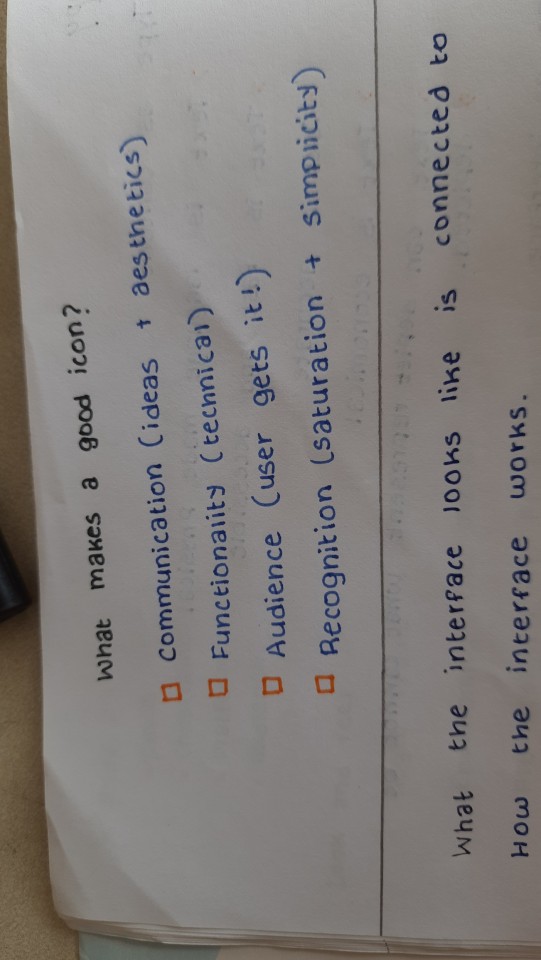 What makes a good icon?
Communication (ideas + aesthetics)
Functionality (technical)
Audience (user gets it!)
Recognition (saturation + simplicity)
What the interface looks like is connected to
How the interface works.